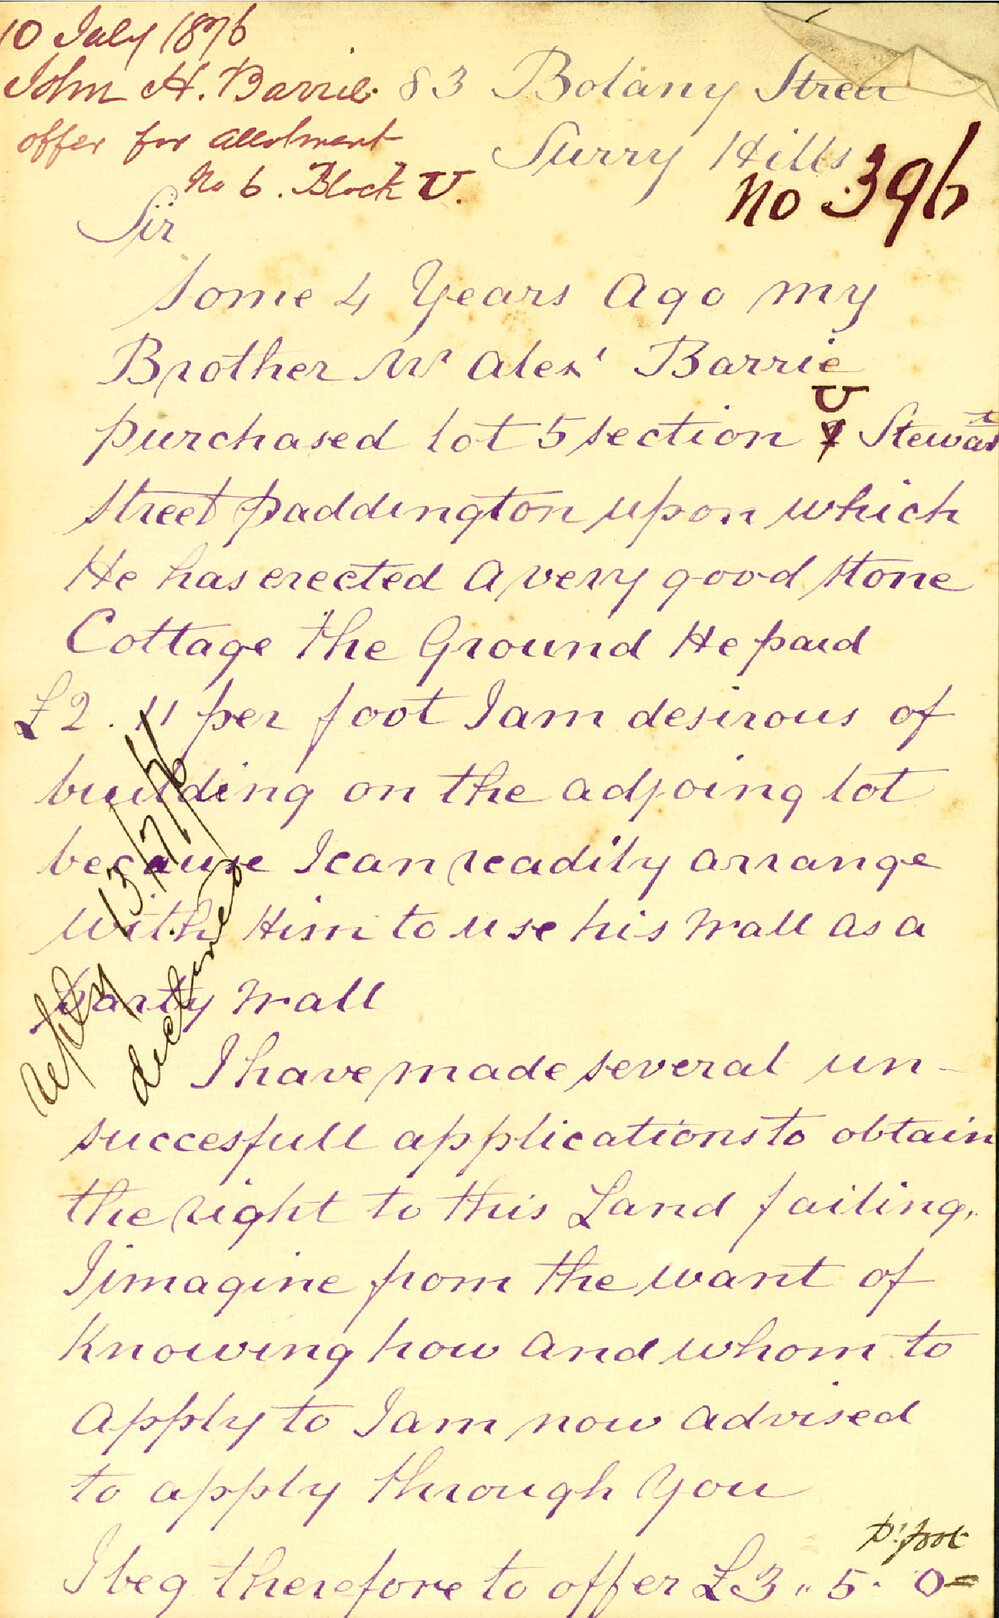 10 July 1876
John H. Barrie
offer for allotment
No 6. Block U.
83 Botany Street
Surry Hills
No 396
Sir
Some 4 Years Ago my
Brother Mr Alexr Barrie
purchased lot 5 section U Stewart
street paddington upon which
He has erected a very good stone
Cottage the Ground He paid
£2.11 per foot I am desirous of
building on the adjoing lot
because I can readily arrange
with Him to use his wall as a
party wall
reply 13/7/76
declined
I have made several un-
succesfull applications to obtain
the right to this Land failing,
I imagine from the want of
Knowing how and whom to
apply to I am now advised
to apply through You
pr foot
I beg therefore to offer £3 " 5 . 0 =